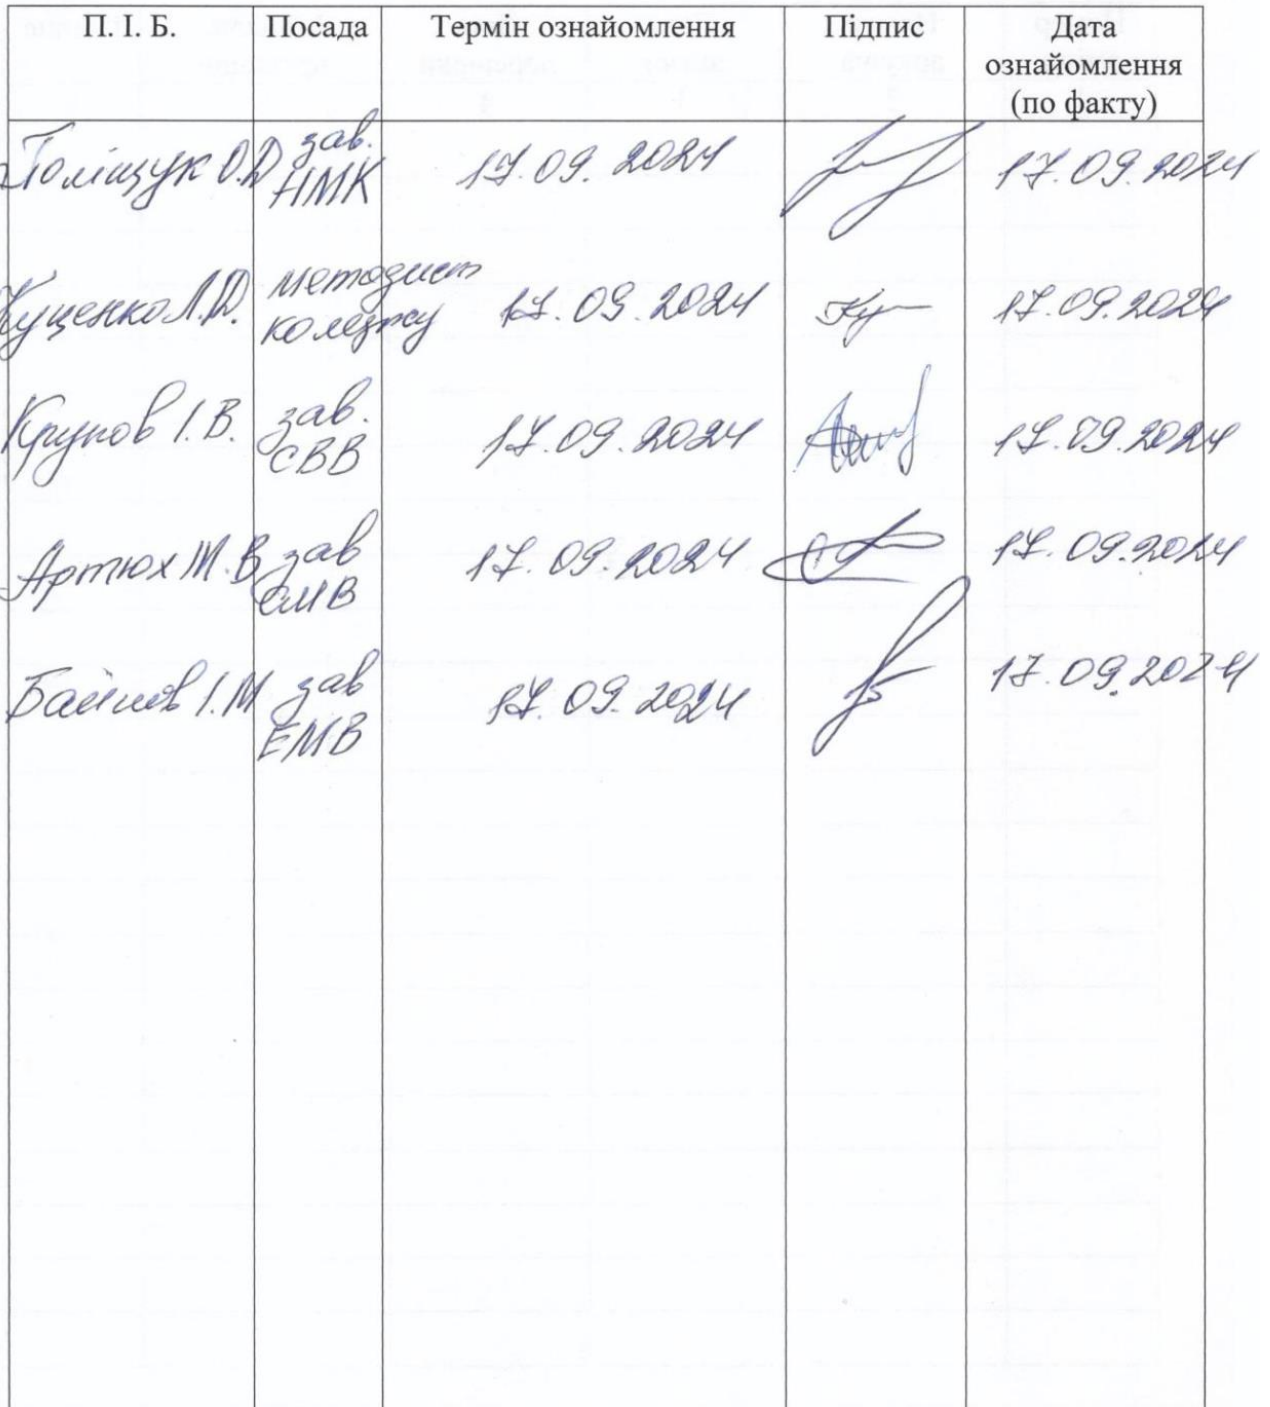 П. І. Б. Посада Термін ознайомлення Підпис Дата
ознайомлення
(по факту)
Поліщук О.Д зав. 17.09.2024 17.09.2024
НМК
Куценко Л.Д. методист 17.09.2024 17.09.2024
коледжу
Крупов І.В. зав. 17.09.2024 17.09.2024
СВВ
Артюх М.В зав 17.09.2024 17.09.2024
СМВ
І.М зав 17.09.2024 17.09.2024
ЕМВ